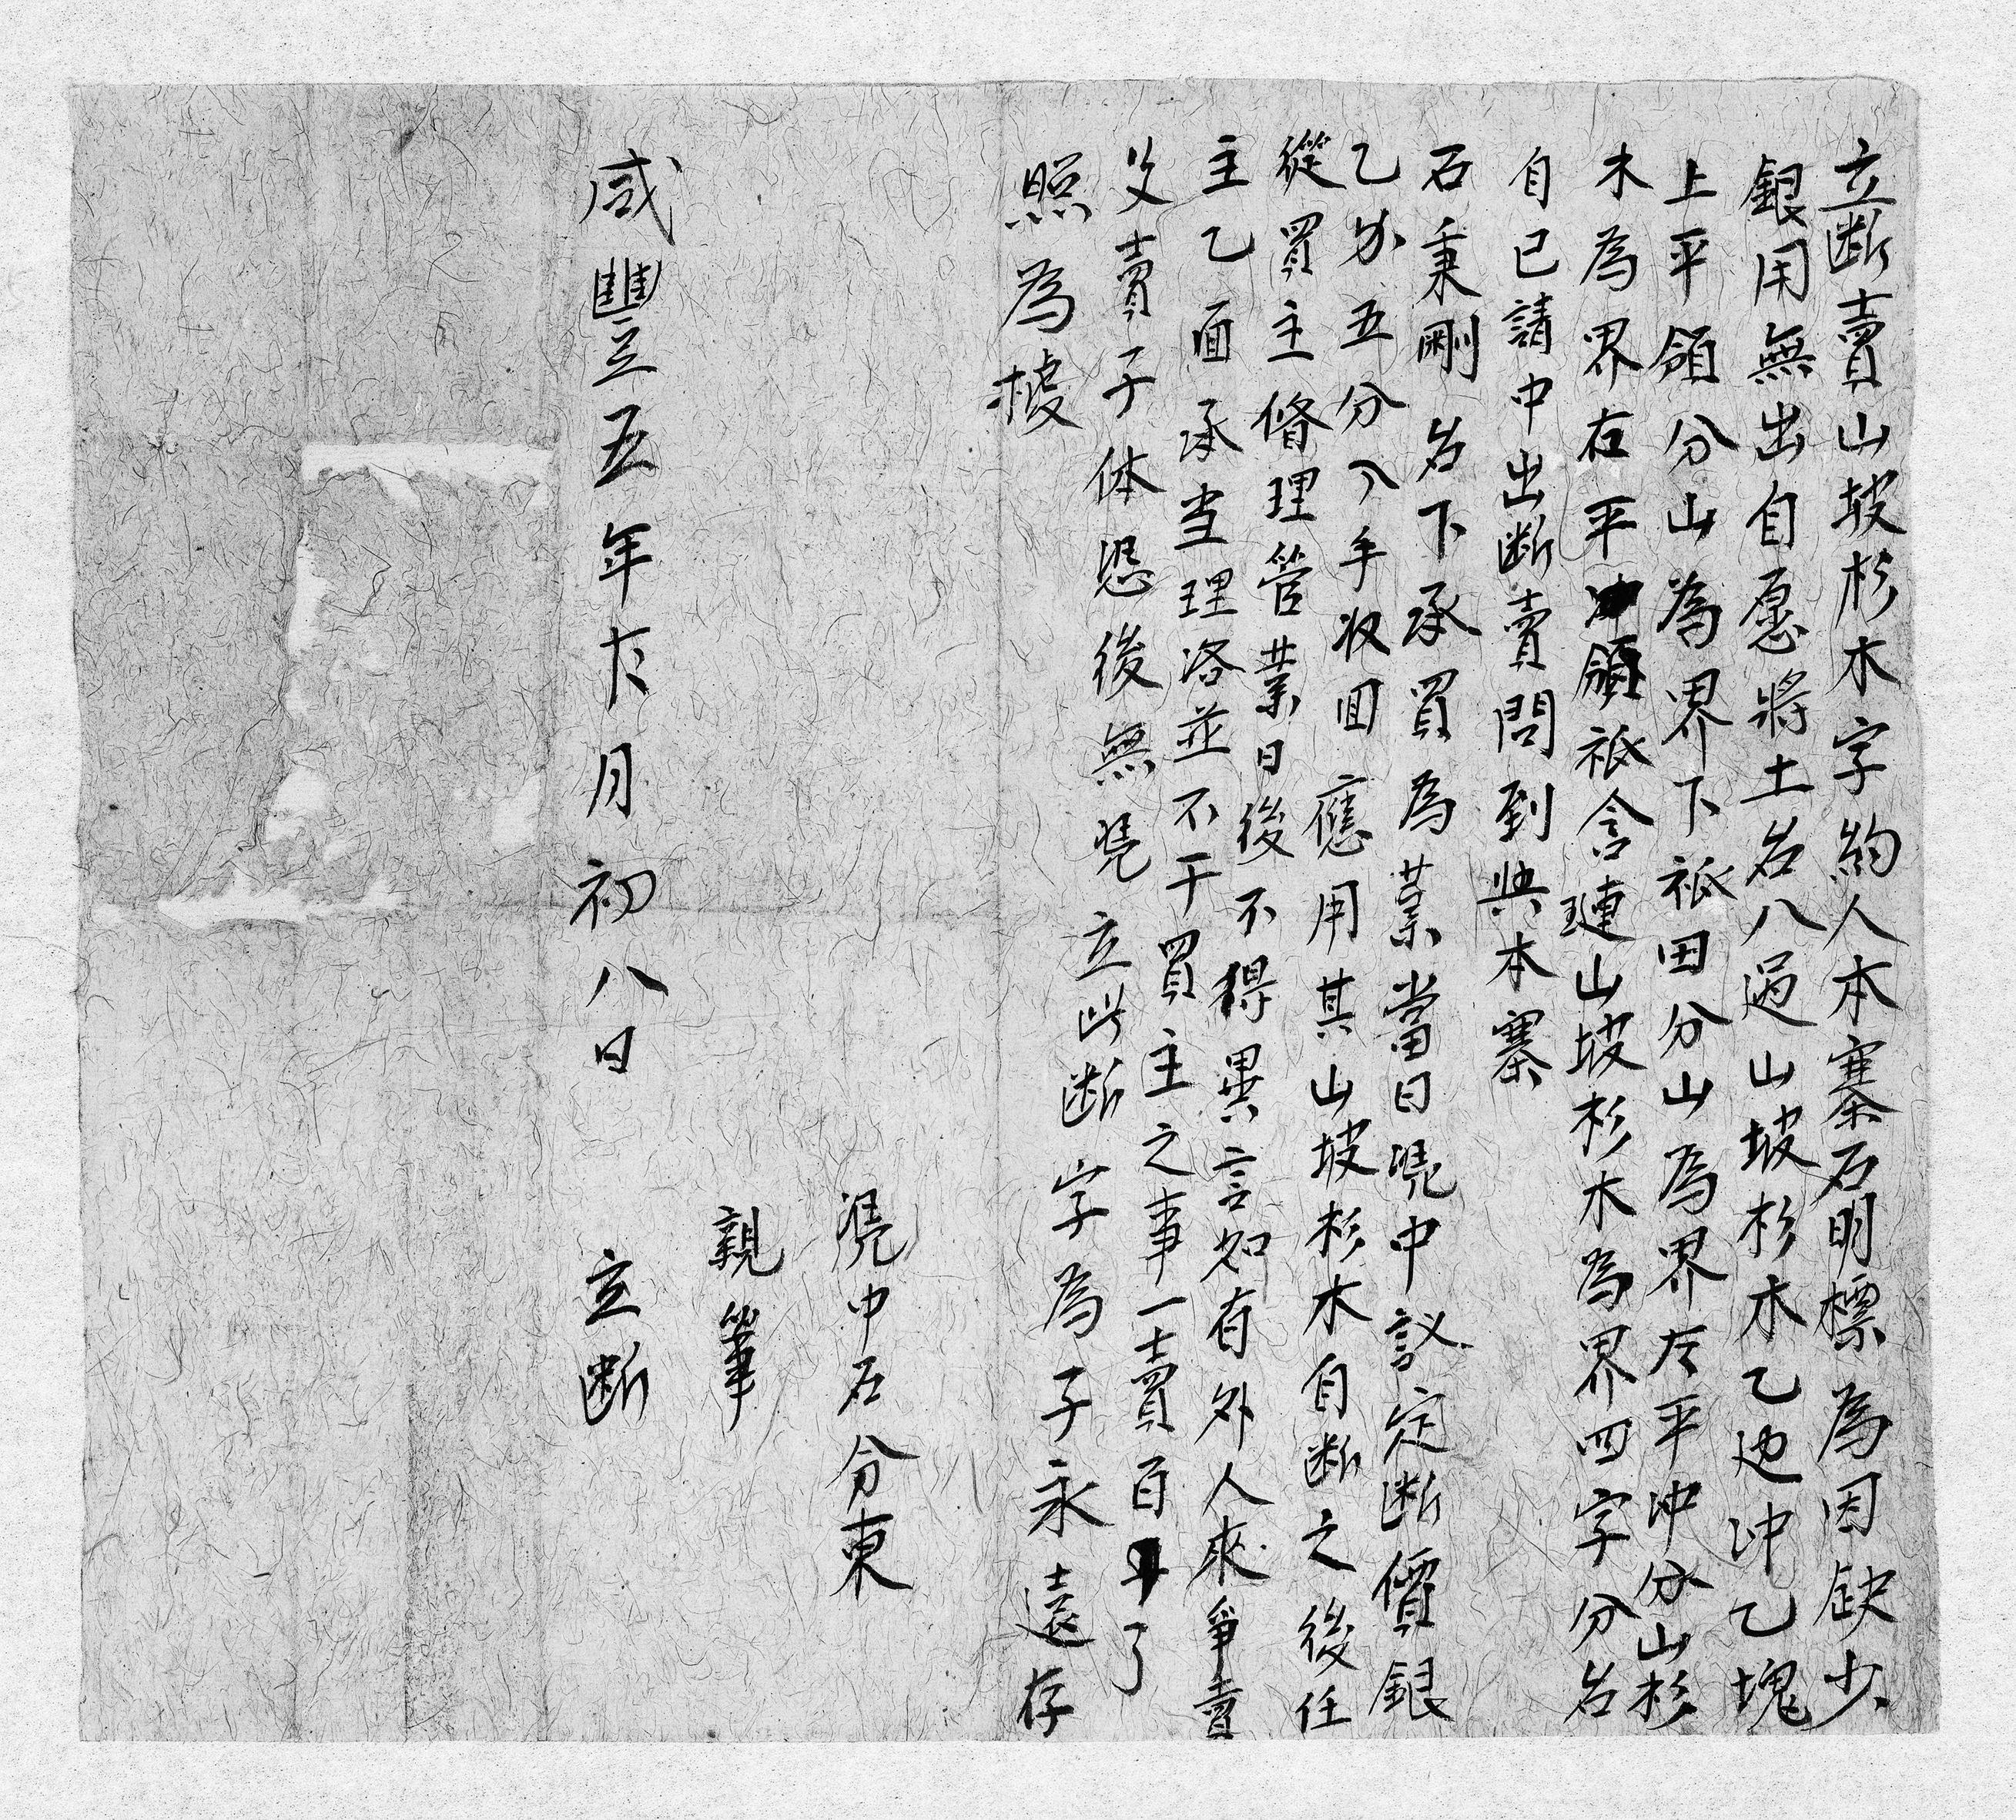 立断賣山坡杉木字約人本寨石明標為因缺少
銀用無出自愿將土名八過山坡杉木乙边冲乙塊
上平領分山為界下袛田分山為界左平冲分山杉
木為界右平領袛含璉山坡杉木為界四字分名
自己請中出断賣問到典本寨
石秉剛名下承買為業當日凴中議定断價銀
乙両五分入手收回應用其山坡杉木自断之後任
從買主修理管業日後不得異言如有外人來爭賣
主乙面承当理洛並不干買主之事一賣百了
父賣子休恐後無凴立此断字為子永遠存
照為據
凴中石分東
親筆
咸豐五年十月初八日立断